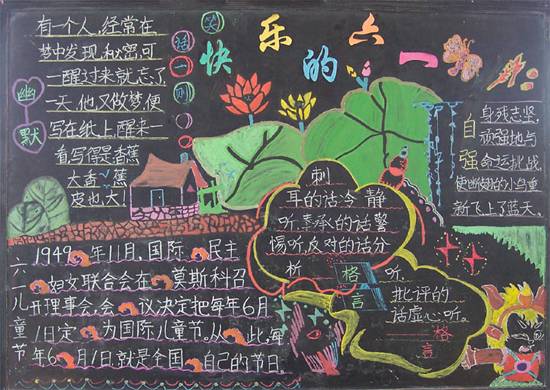 快乐的六一
笑话一则
幽默
有一个人,经常在
梦中发现秘密可
一醒过来就忘了
一天,他又做梦便
写在纸上,醒来一
看,写得是香蕉
大,香蕉
皮也大!
自强
身残志坚,
顽强地与
命运挑战,
新飞上了蓝天。
刺
耳的话冷静
听,奉承的话警
惕听,反对的话分
析听,
批评的
话虚心听。
格言
格言
六一儿童节
1949年11月,国际民主
妇女联合会在莫斯科召
开理事会,会议决定把每年6月
1日定为国际儿童节。从此,每
年6月1日就是全国自己的节日。